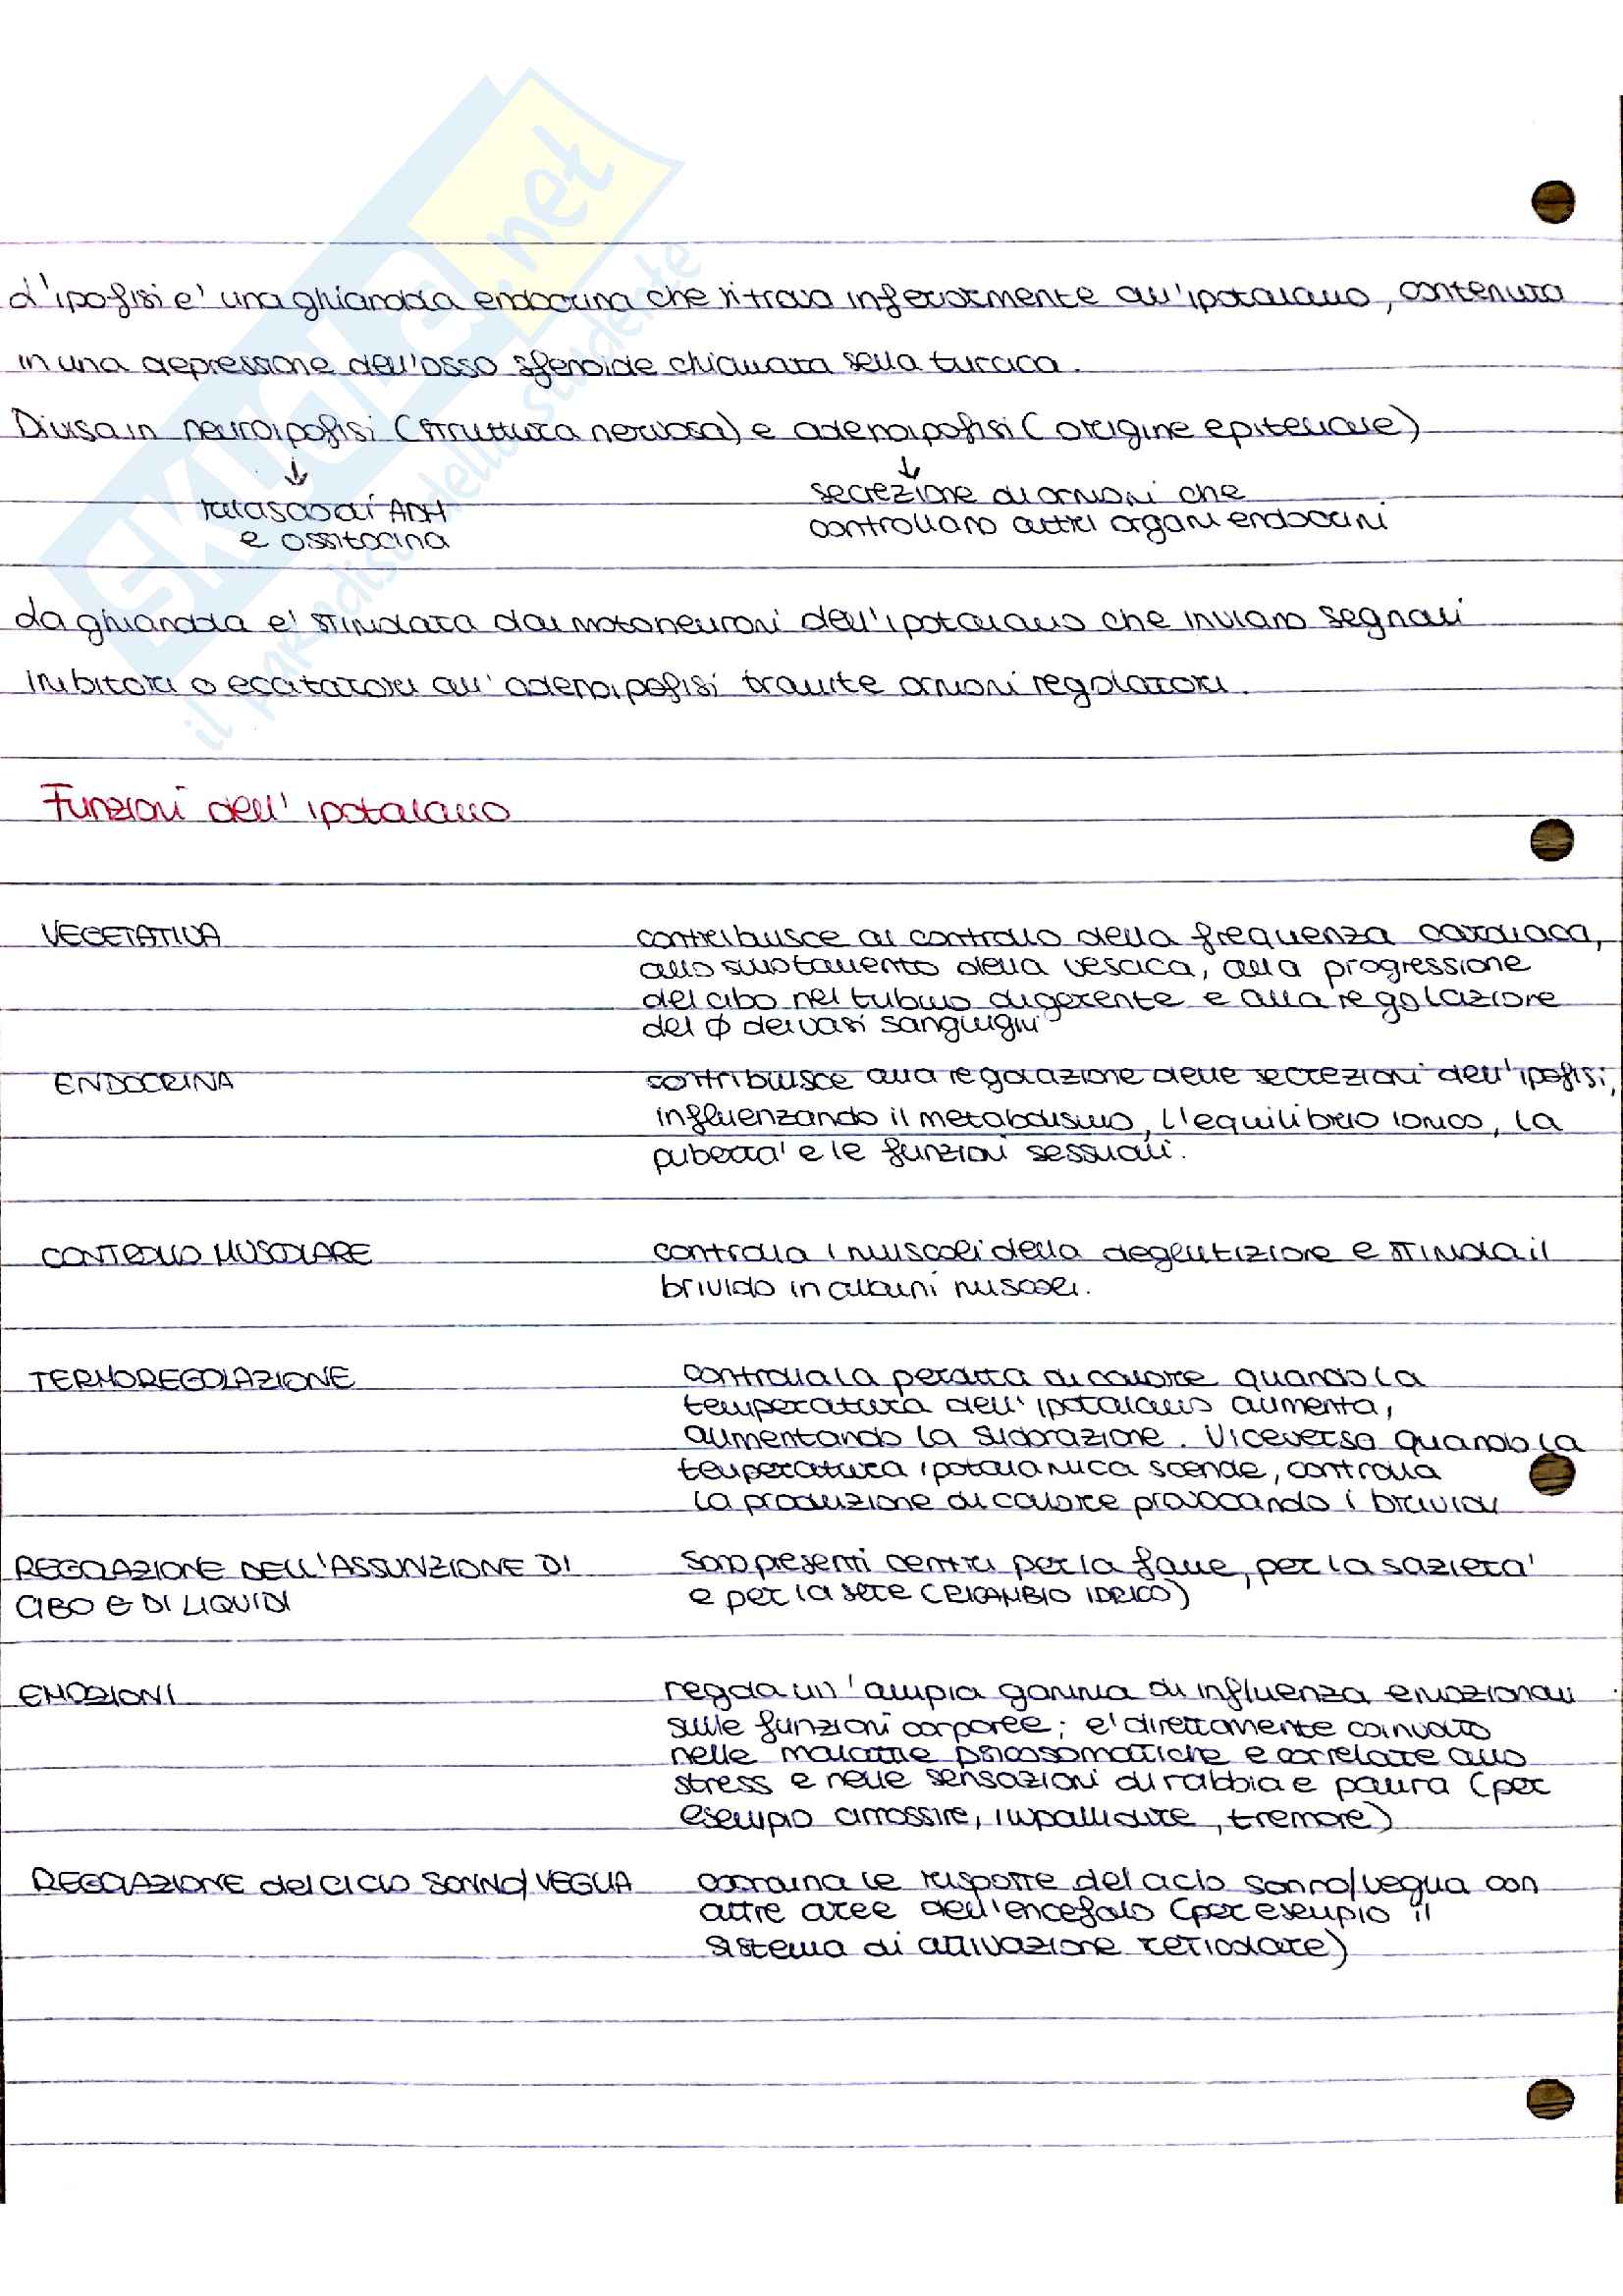 L'ipofisi e' una ghiandola endocrina che si trova inferiormente all'ipotalamo, contenuta
in una depressione dell'osso sfenoide chiamata sella turcica.
Divisa in neuroipofisi (struttura nervosa) e adenoipofisi (origine epiteliale)
↓ ↓
rilascio di ADH
e ossitocina
secrezione di ormoni che
controllano altri organi endocrini
La ghiandola e' stimolata dai motoneuroni dell'ipotalamo che inviano segnali
inibitori o eccitatori all'adenoipofisi tramite ormoni regolatori.
Funzioni dell'ipotalamo
VEGETATIVA
contribuisce al controllo della frequenza cardiaca,
allo svuotamento della vescica, alla progressione
del cibo nel tubulo digerente e alla regolazione
del φ dei vasi sanguigni
ENDOCRINA
contribuisce alla regolazione delle secrezioni dell'ipofisi,
influenzando il metabolismo, l'equilibrio ionico, la
puberta' e le funzioni sessuali.
CONTROLLO MUSCOLARE
controlla i muscoli della deglutizione e stimola il
brivido in alcuni muscoli.
TERMOREGOLAZIONE
controlla la perdita di calore quando la
temperatura dell'ipotalamo aumenta,
aumentando la sudorazione. Viceversa quando la
temperatura ipotalamica scende, controlla
la produzione di calore provocando i brividi
REGOLAZIONE DELL'ASSUNZIONE DI
CIBO E DI LIQUIDI
sono presenti centri per la fame, per la sazieta'
e per la sete (RICAMBIO IDRICO)
EMOZIONI
regola un'ampia gamma di influenza emozionali
sulle funzioni corporee; e' direttamente coinvolto
nelle malattie psicosomatiche e correlate allo
stress e nelle sensazioni di rabbia e paura (per
esempio arrossire, impallidire, tremore)
REGOLAZIONE del CICLO SONNO/VEGLIA
coordina le risposte del ciclo sonno/veglia con
altre aree dell'encefalo (per esempio il
sistema di attivazione reticolare)
SKUOLA.net
il paradiso dello studente